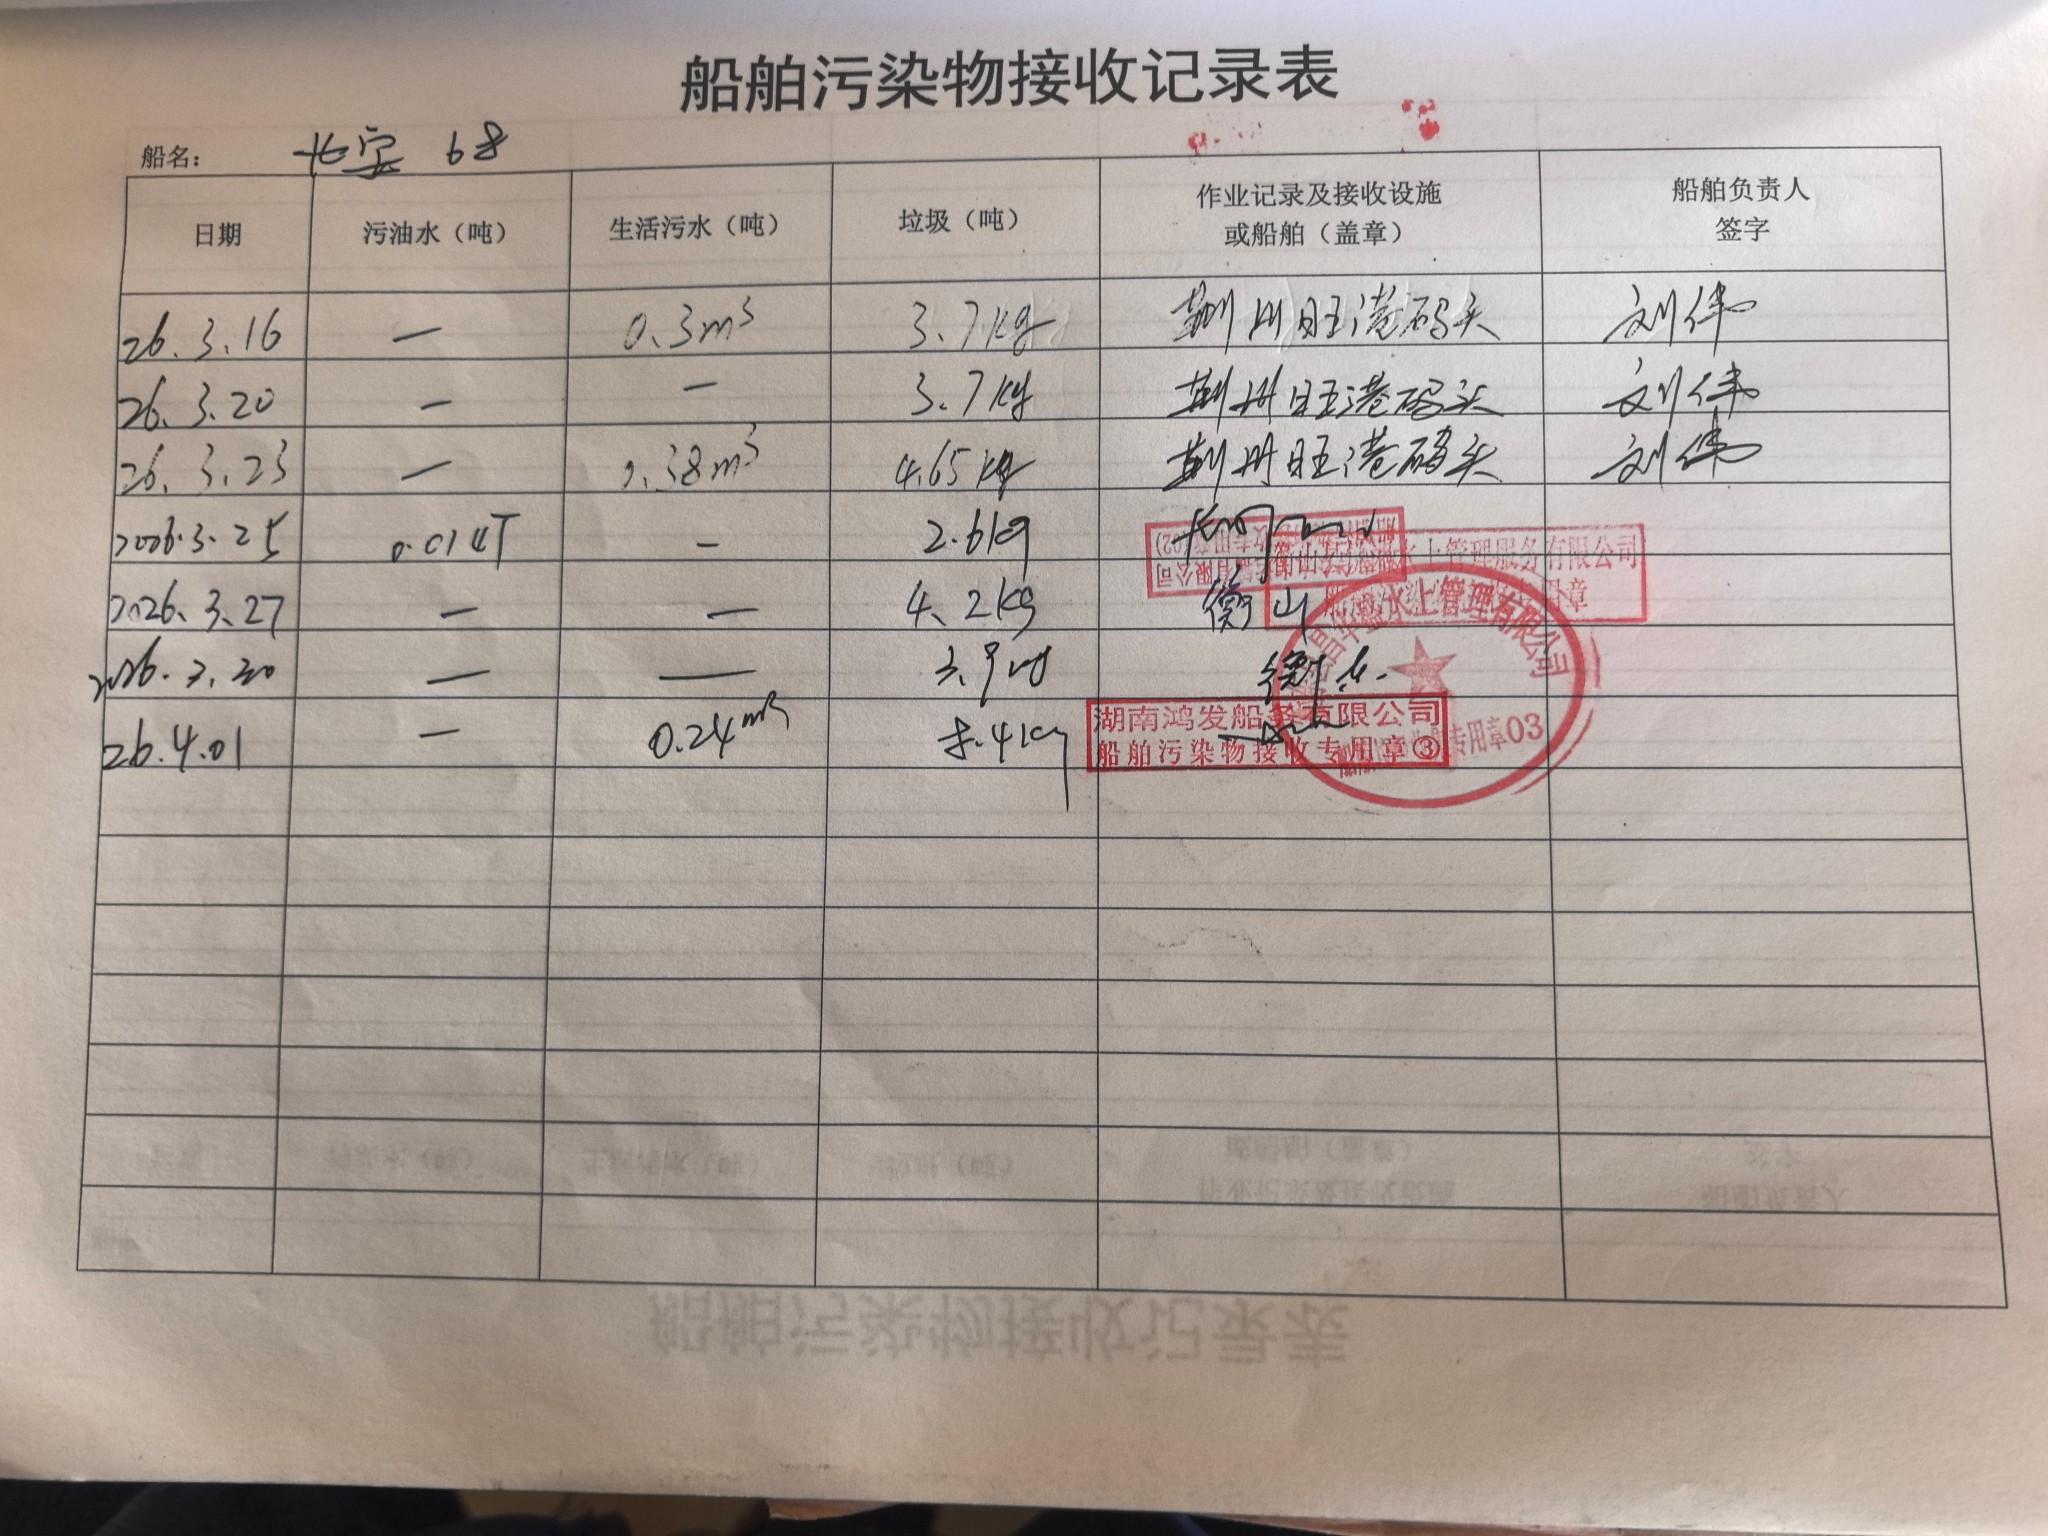 船舶污染物接收记录表
船名： 68
日期 污油水（吨） 生活污水（吨） 垃圾（吨） 作业记录及接收设施或船舶（盖章） 船舶负责人签字
26.3.16 — 0.3m³ 3.7kg 荆州旺港码头 刘伟
26.3.20 — — 3.7kg 荆州旺港码头 刘伟
26.3.23 — 0.38m³ 4.65kg 荆州旺港码头 刘伟
2026.3.25 0.014T — 2.6kg
水上管理服务有限公司
2026.3.27 — — 4.2kg 衡山
用章
水上管理有限公司
2026.3.30 — — 3.9kg
26.4.01 — 0.24m³ 8.4kg
湖南鸿发船务有限公司
船舶污染物接收专用章③
专用章03